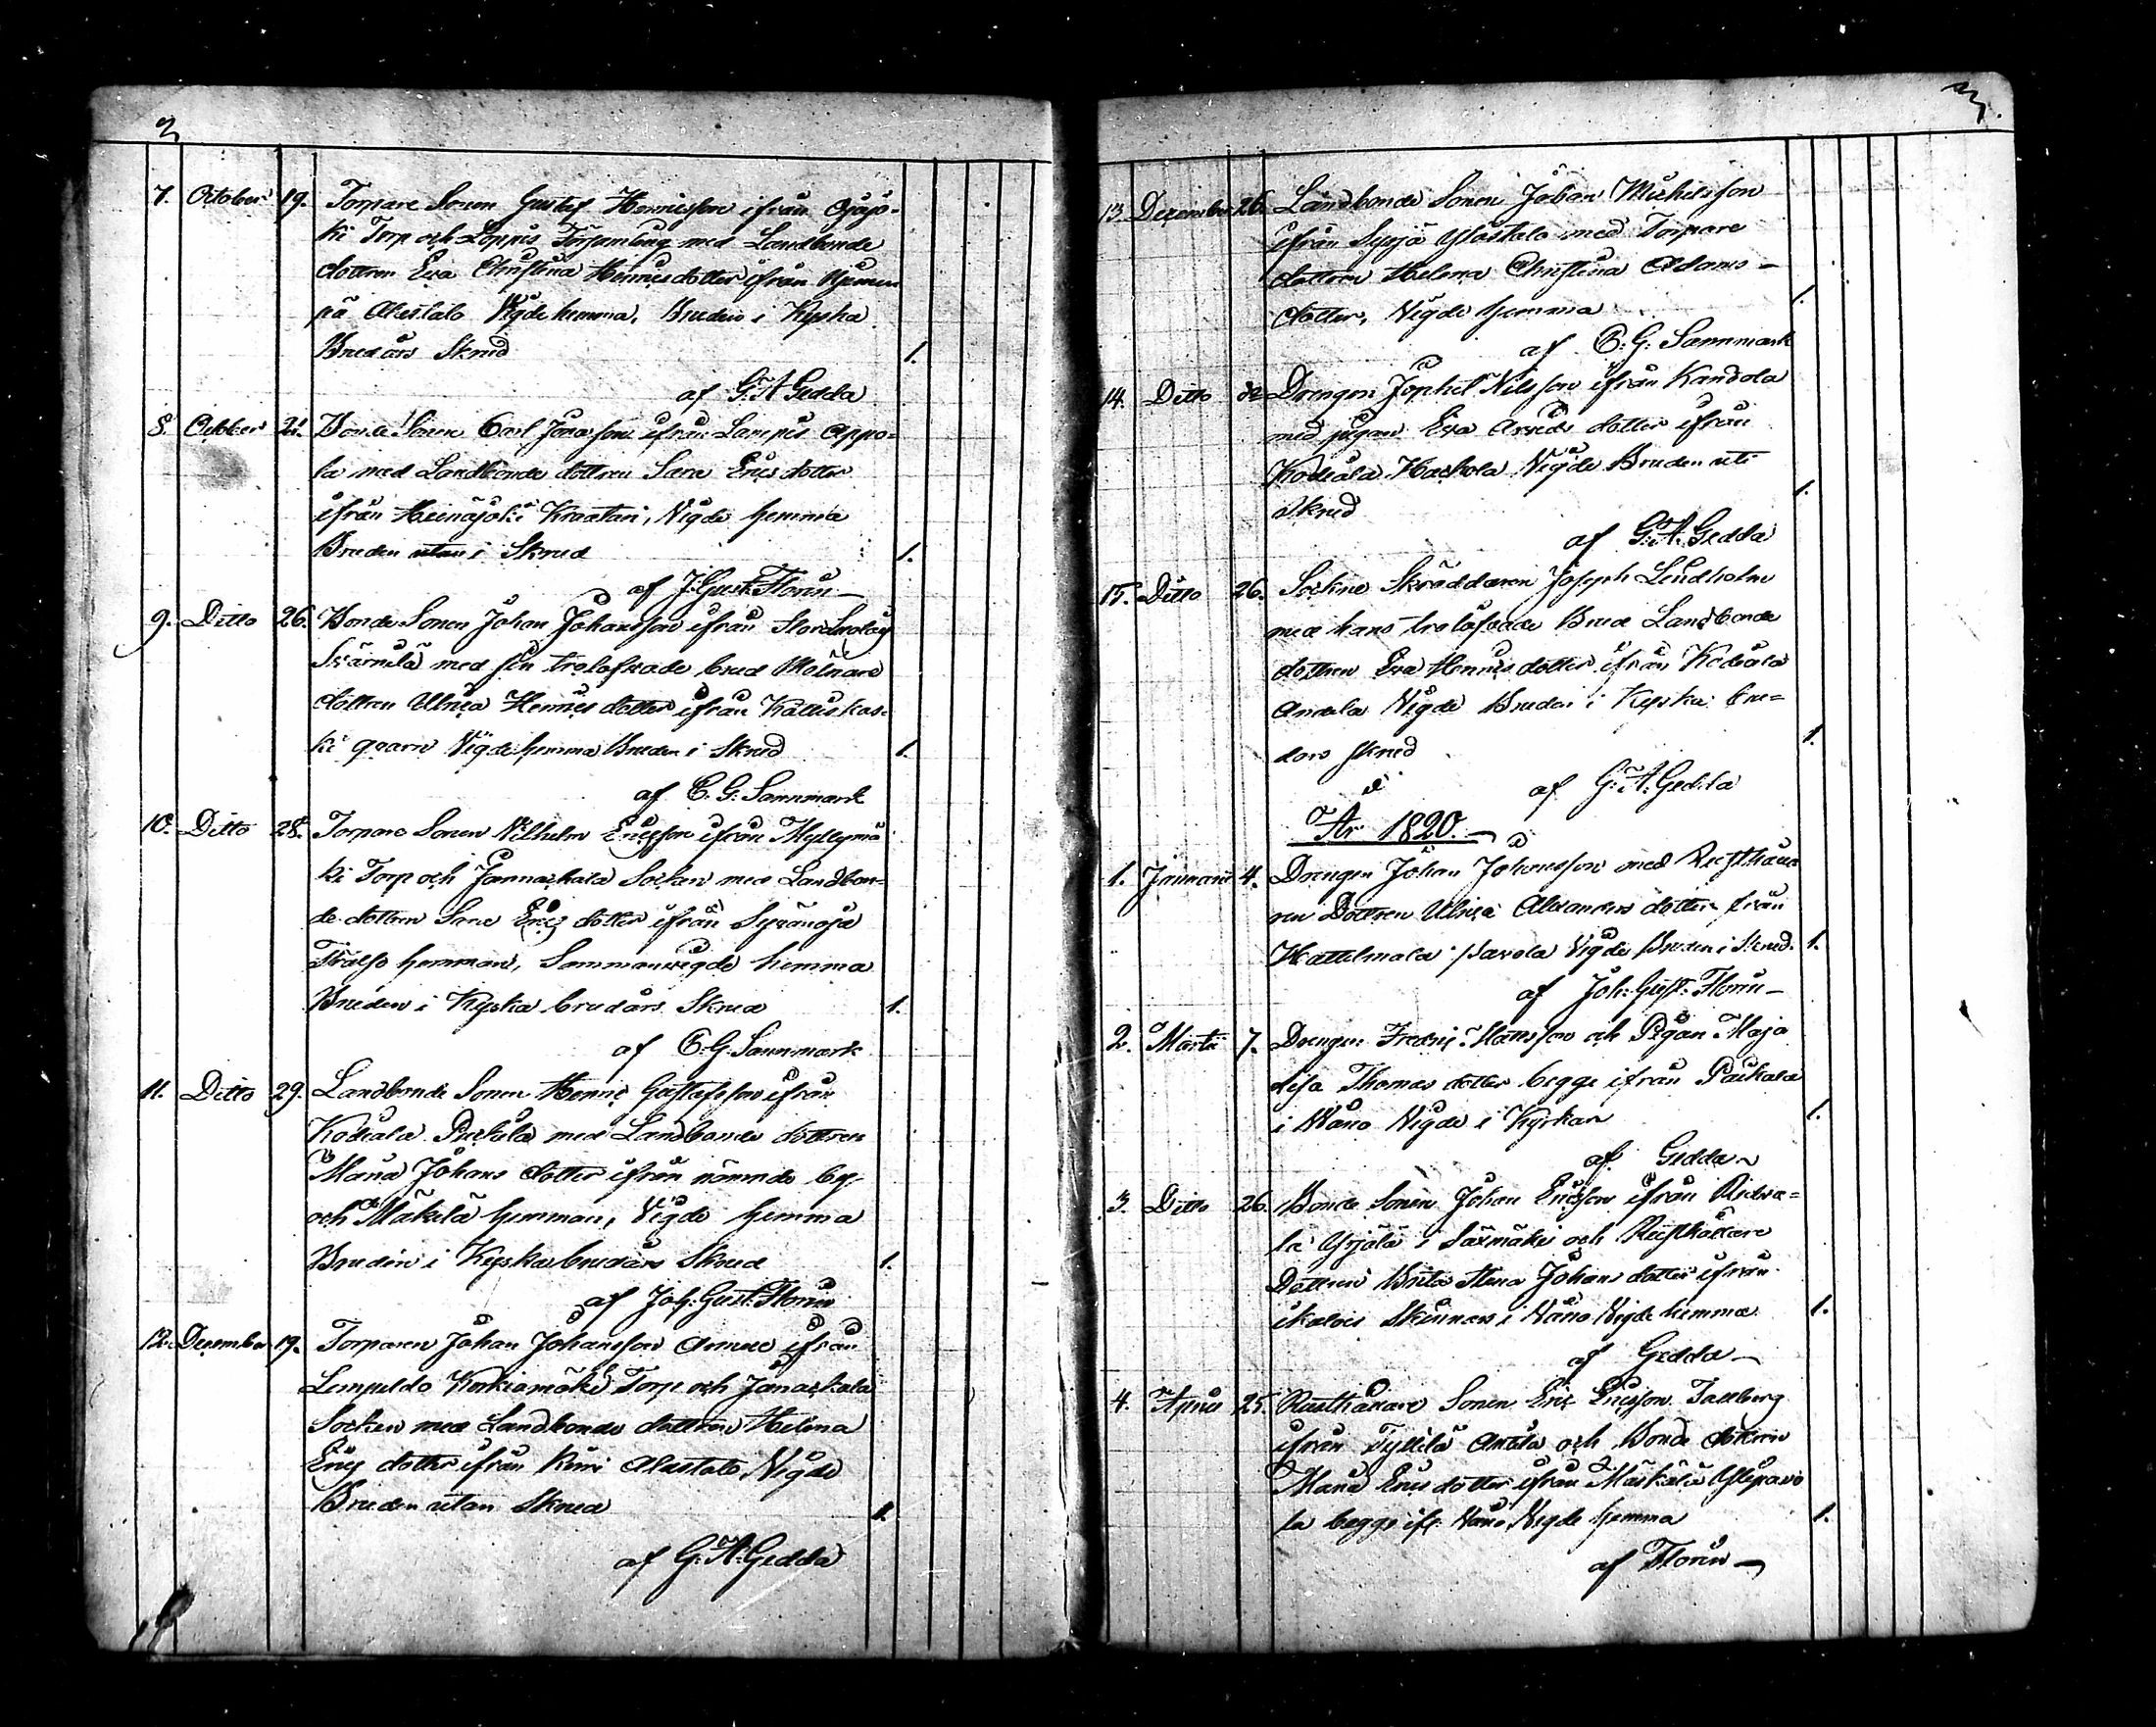 2
7. October 19. Torpare Sonen Gustaf Hennicsson ifrån Ojajo-
ki Torp och Loppis Församling med Landbonde
dottren Eva Christina Hennics dotter ifrån
på Alestalo Vigde hemma, Bruden i Kyrko
Brudårs Skrud 1.
af G. A. Gedda
8. October 21. Bonde Sonen Carl Jönasson ifrån Lampis Appo-
la med Landbonde dottren Sara Erics dotter
ifrån Heinäjoki Kraatari, Vigde hemma
Bruden utan i Skrud 1.
af J. Gust. Florin
9. Ditto 26. Bonde Sonen Johan Johansson ifrån
med sin trolofvade brud Mölnare
dottren Ulrica Hennics dotter ifrån Kattiskos-
ki qvarn Vigde hemma Bruden i Skrud 1.
af C. G. Sannmark
10. Ditto 28. Torpare Sonen Vilhelm Ericsson ifrån Myllymä
ki Torp och Jannackala Socken med Landbon-
de dottren Sara Erics dotter ifrån Syvänoja
hemman, Sammanvigde hemma
Bruden i Kyrko brudårs Skrud 1.
af C. G. Sannmark
11. Ditto 29. Landbonde Sonen Hennic Gustafsson ifrån
Kodiala med Landbonde dottren
Maria Johans dotter ifrån nämnde by
och Mäkelä hemman, Vigde hemma
Bruden i Kyrko brudårs Skrud 1.
af Joh. Gust. Florin
12. December 19. Torparen Johan Johansson ifrån
Korkiamäki Torp och Janackala
Socken med Landbonde dottren Helena
Erics dotter ifrån Alastalo, Vigde
Bruden utan Skrud 1.
af G. A. Gedda
3.
13. December 26. Landbonde Sonen Johan Michelsson
ifrån Syrjä Ylöstalo med Torpare
dottren Helena Christina Adams-
dotter, Vigde hemma 1.
af C. G. Sannmark
14. Ditto Drengen Jophet Nilsson ifrån Kandola
med pigan Eva Arvids dotter ifrån
Kodiala Hackola Vigde Bruden uti
Skrud 1.
af G. A. Gedda
15. Ditto 26. Sockne Skräddaren Joseph Lindholm
med hans trolofvade Brud Landbonde
dottren Eva Hennics dotter ifrån Kodiala
Vigde Bruden i Kyrko bru-
dars skrud 1.
af G. A. Gedda
År 1820.
1. Januarii 4. Drengen Johan Johansson med Rusthålla
ren Dottren Ulrica Alexanders dotter från
Hattelmala Pavola Vigde Bruden i Skrud. 1.
af Joh. Gust. Florin
2. Martii 7. Drengen Fredric Mattsson och Pigan Maja
Lisa Thomas dotter begge ifrån Paikala
i Wåno Vigde i Kyrkan 1.
af Gedda
3. Ditto 26. Bonde Sonen Johan Ericsson ifrån Ridva-
la Yrjölä i Säxmäki och Rusthållare
Dottren Brita Stina Johans dotter ifrån
Skinnars i Wåno Vigde hemma 1.
af Gedda
4. April 25. Rusthållare Sonen Eric Ericsson Tallberg
ifrån Tyllilä Antila och Bonde dottren
Maria Erics dotter ifrån Määkälä Ylipavo
la begge ifr. Wåno, Vigde hemma 1.
af Florin